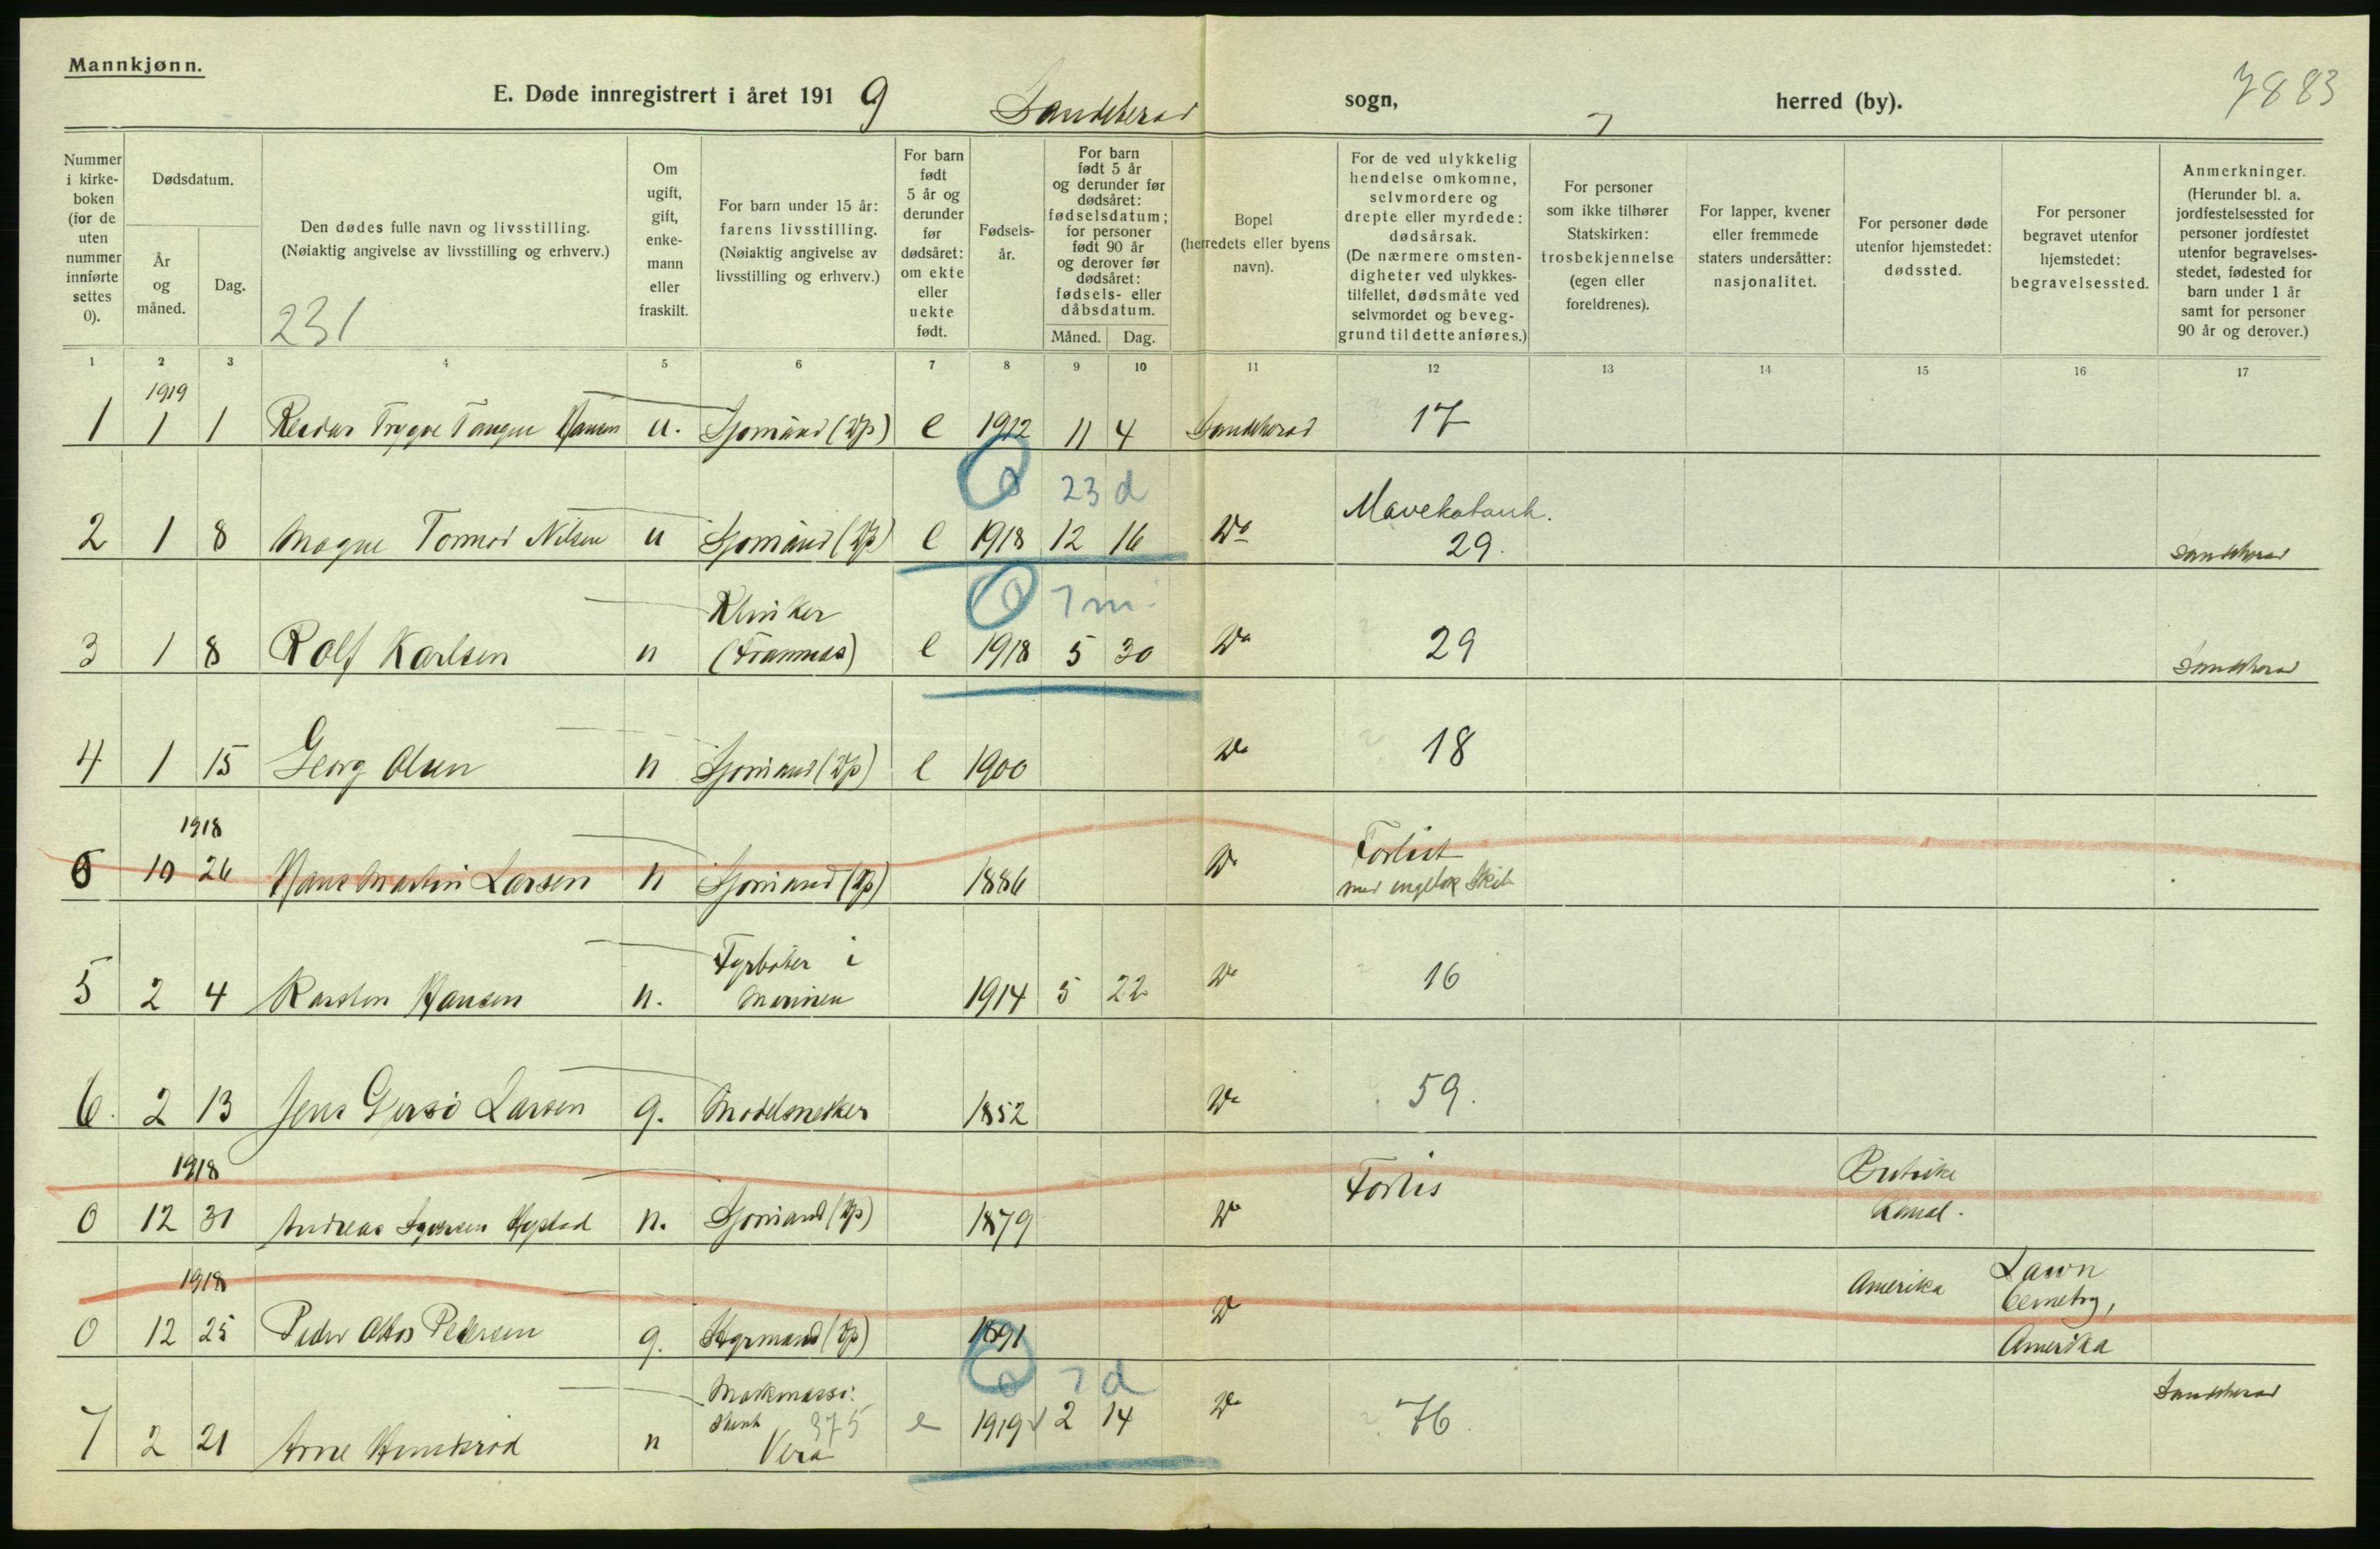 Mannkjønn.
E. Døde innregistrert i året 1919 Sandeherad sogn, herred (by).
7883
Nummer i kirke-boken (for de uten nummer innførte settes 0).
Dødsdatum.
År og måned.
Dag.
Den dødes fulle navn og livsstilling.
(Nøiaktig angivelse av livsstilling og erhverv.)
231
Om ugift, gift, enke-mann eller fraskilt.
For barn under 15 år: farens livsstilling.
(Nøiaktig angivelse av livsstilling og erhverv.)
For barn født 5 år og derunder før dødsåret: om ekte eller uekte født.
Fødsels-år.
For barn født 5 år og derunder før dødsåret: fødselsdatum; for personer født 90 år og derover før dødsåret: fødsels- eller dåbsdatum.
Måned. Dag.
Bopel (herredets eller byens navn).
For de ved ulykkelig hendelse omkomne, selvmordere og drepte eller myrdede: dødsårsak.
(De nærmere omsten-digheter ved ulykkes-tilfellet, dødsmåte ved selvmordet og beveg-grund til dette anføres.)
For personer som ikke tilhører Statskirken: trosbekjennelse (egen eller foreldrenes).
For lapper, kvener eller fremmede staters undersåtter: nasjonalitet.
For personer døde utenfor hjemstedet: dødssted.
For personer begravet utenfor hjemstedet: begravelsessted.
Anmerkninger.
(Herunder bl. a. jordfestelsessted for personer jordfestet utenfor begravelses-stedet, fødested for barn under 1 år samt for personer 90 år og derover.)
1 2 3 4 5 6 7 8 9 10 11 12 13 14 15 16 17
1919
1 1 1 Reidar Trygve Tangen Hansen u. Sjømand e 1912 11 4 Sandeherad 17
23 d
2 1 8 Magne Tormod Nilsen u Sjømand e 1918 12 16 Do Mavekatarrh. 29. Sandeherad
7 m.
3 1 8 Rolf Karlsen u (Framnæs) e 1918 5 30 Do 29 Sandeherad
4 1 15 Georg Olsen u Sjømand e 1900 Do 18
1918
0 10 26 Hans Martin Larsen u Sjømand 1886 Do Forlist
med engelsk Skib
5 2 4 Karsten Hansen u. Fyrbøter i Marinen 1914 5 22 Do 16
6. 2 13 Jens Larsen g. Modelsnekker 1852 Do 59.
1918
0 12 31 Andreas u. Sjømand 1879 Do Forlis Kanal.
1918
0 12 25 Peder Pedersen g. Styrmand 1891 Do Amerika Lawn Cemetry, Amerika
7 d
7 2 21 Arne u 375 Vera e 1919 2 14 Do 76 Sandeherad